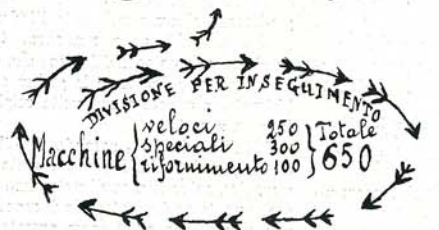 DIVISIONE PER INSEGUIMENTO
Macchine { veloci 250 } Totale
speciali 300
rifornimento 100 650